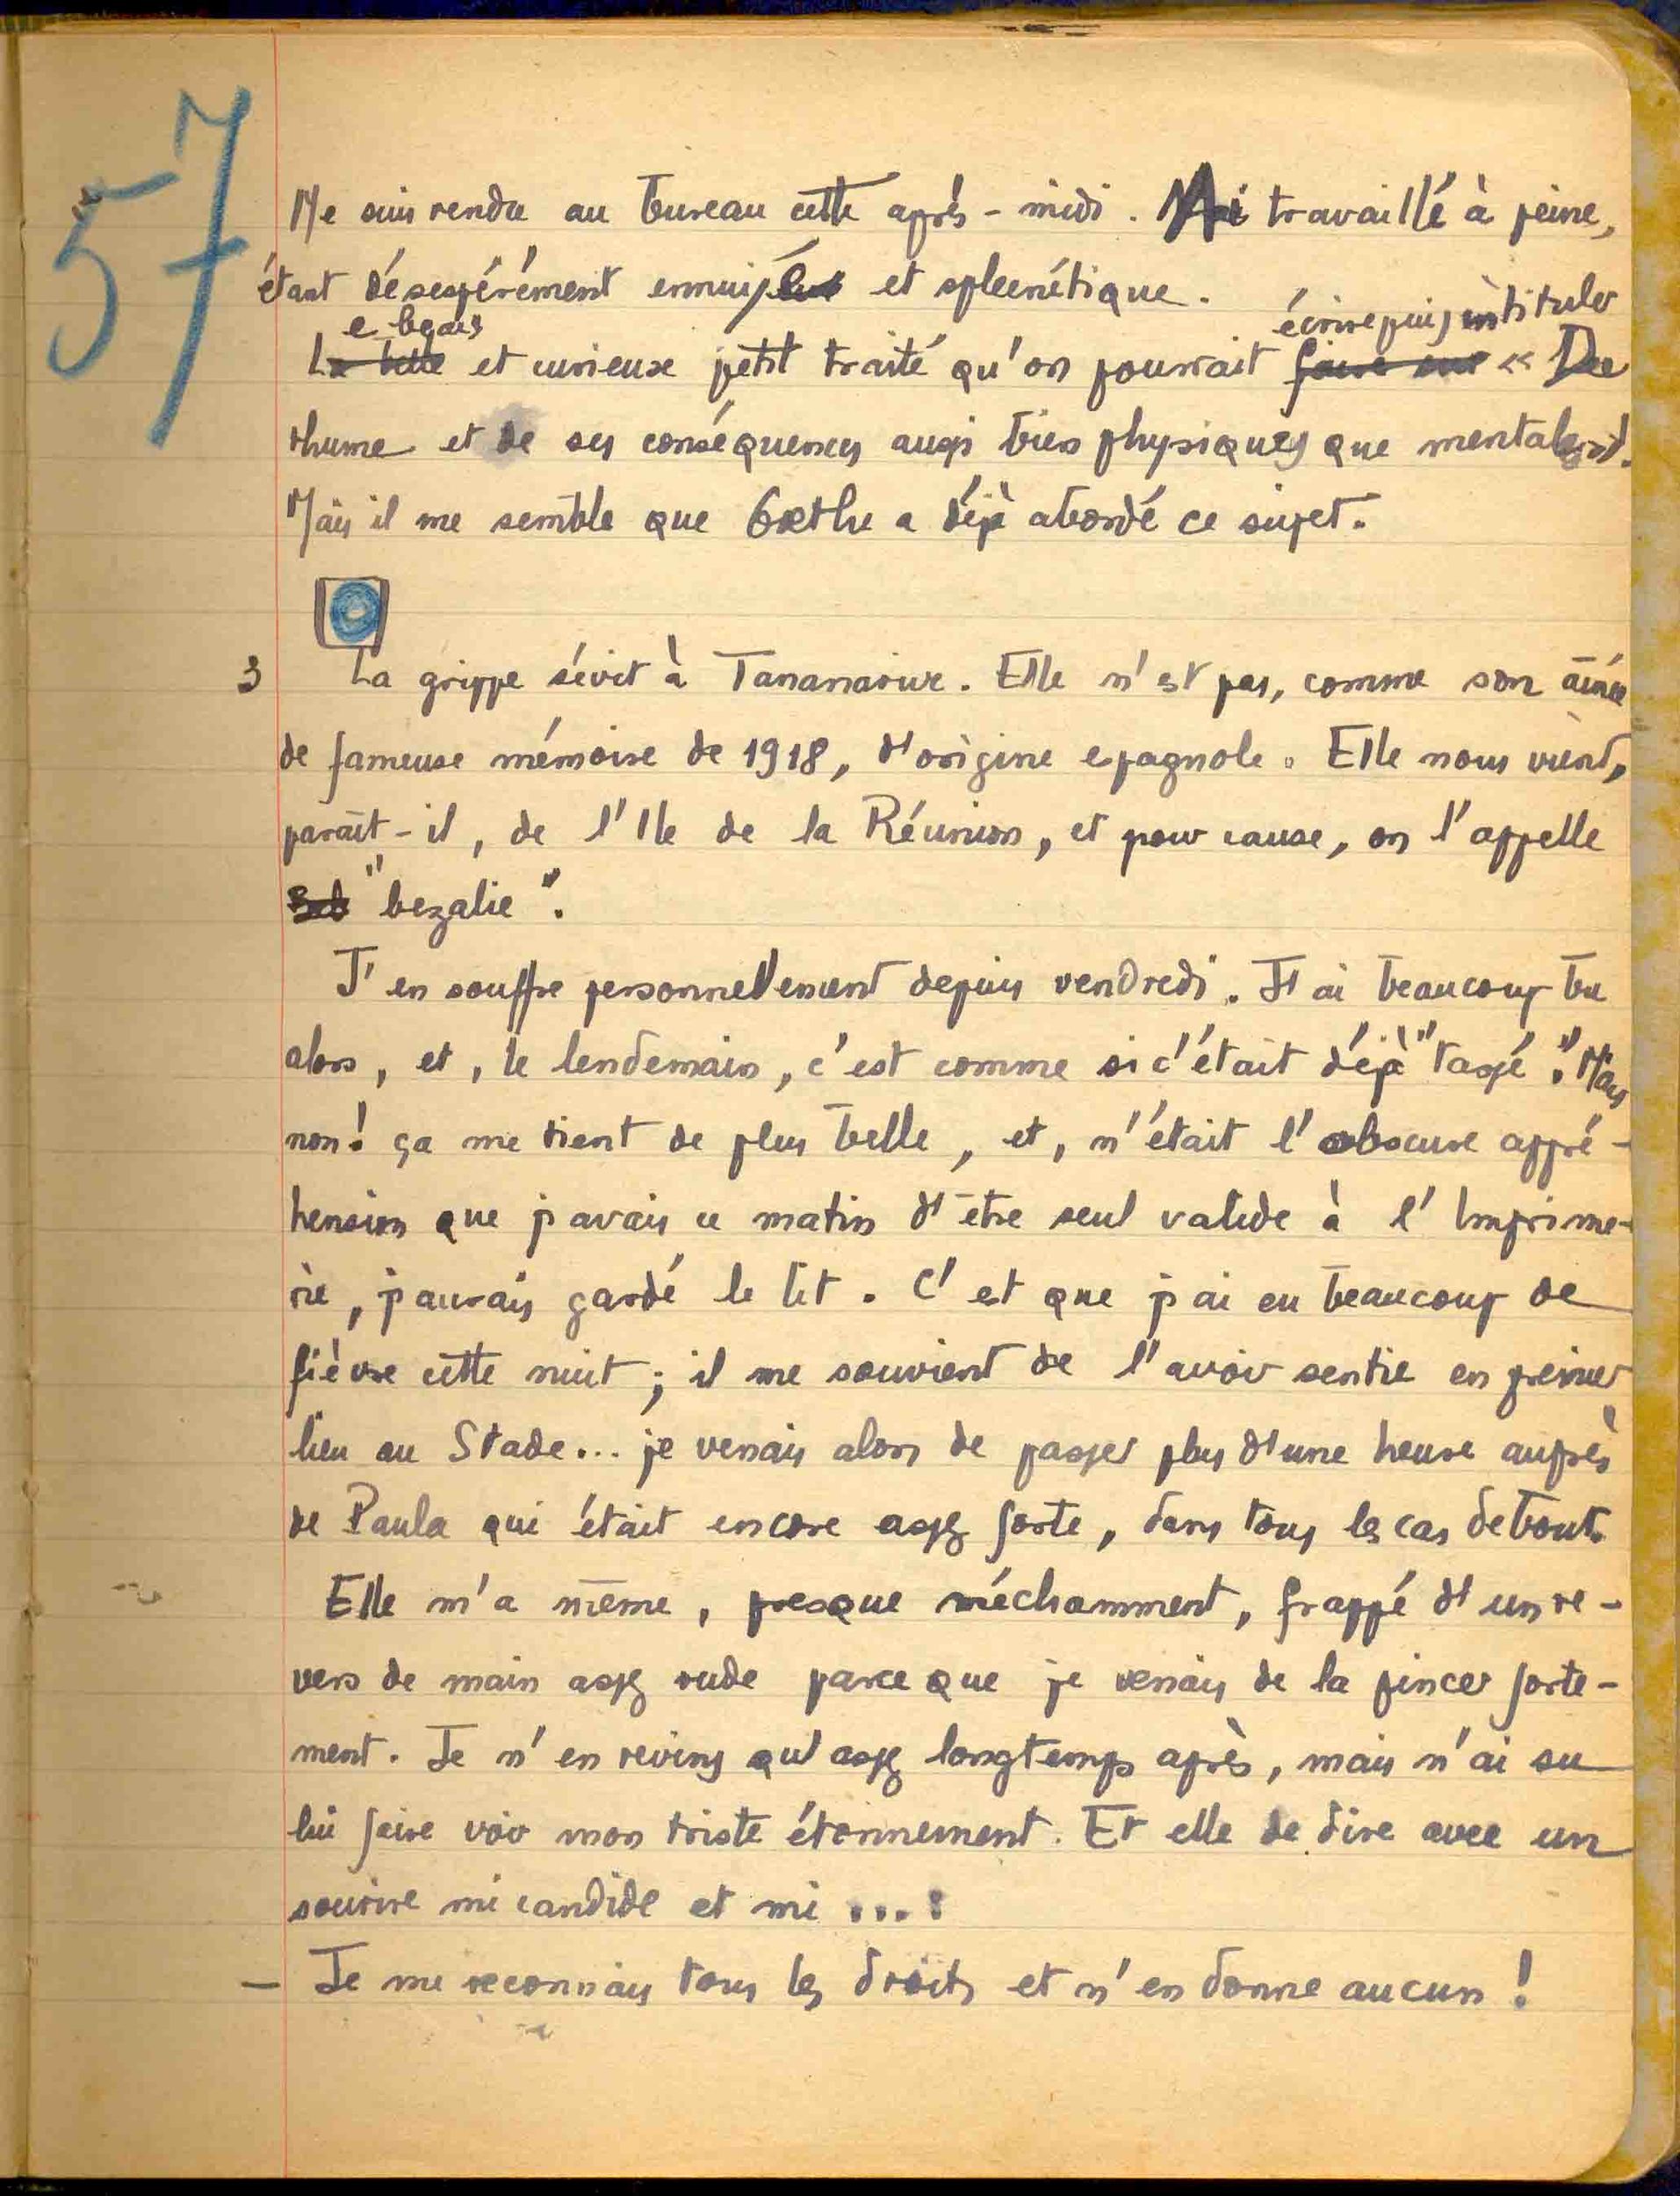 57
Me suis rendu au bureau cette après-midi. Ai travaillé à peine,
étant désespérément ennuyé et spleenétique.
e beau écrire puis intituler
La belle et curieuse petit traité qu'on pourrait faire sur « Du
rhume et de ses conséquences aussi bien physiques que mentales ».
Mais il me semble que Gœthe a déjà abordé ce sujet.
3 La grippe sévit à Tananarive. Elle n'est pas, comme son aînée
de fameuse mémoire de 1918, d'origine espagnole. Elle nous vient,
paraît-il, de l'Ile de la Réunion, et pour cause, on l'appelle
"bezalie".
J'en souffre personnellement depuis vendredi. J'ai beaucoup bu
alors, et, le lendemain, c'est comme si c'était déjà "tassé". Mais
non! ça me tient de plus belle, et, n'était l'obscure appré-
hension que j'avais ce matin d'être seul valide à l'Imprime-
rie, j'aurais gardé le lit. C'est que j'ai eu beaucoup de
fièvre cette nuit; il me souvient de l'avoir sentie en premier
lieu au Stade... je venais alors de passer plus d'une heure auprès
de Paula qui était encore assez forte, dans tous les cas debout.
Elle m'a même, presque méchamment, frappé d'un re-
vers de main assez rude parce que je venais de la pincer forte-
ment. Je n'en revins qu'assez longtemps après, mais n'ai su
lui faire voir mon triste étonnement. Et elle de dire avec un
sourire mi candide et mi ... :
— Je me reconnais tous les droits et n'en donne aucun !